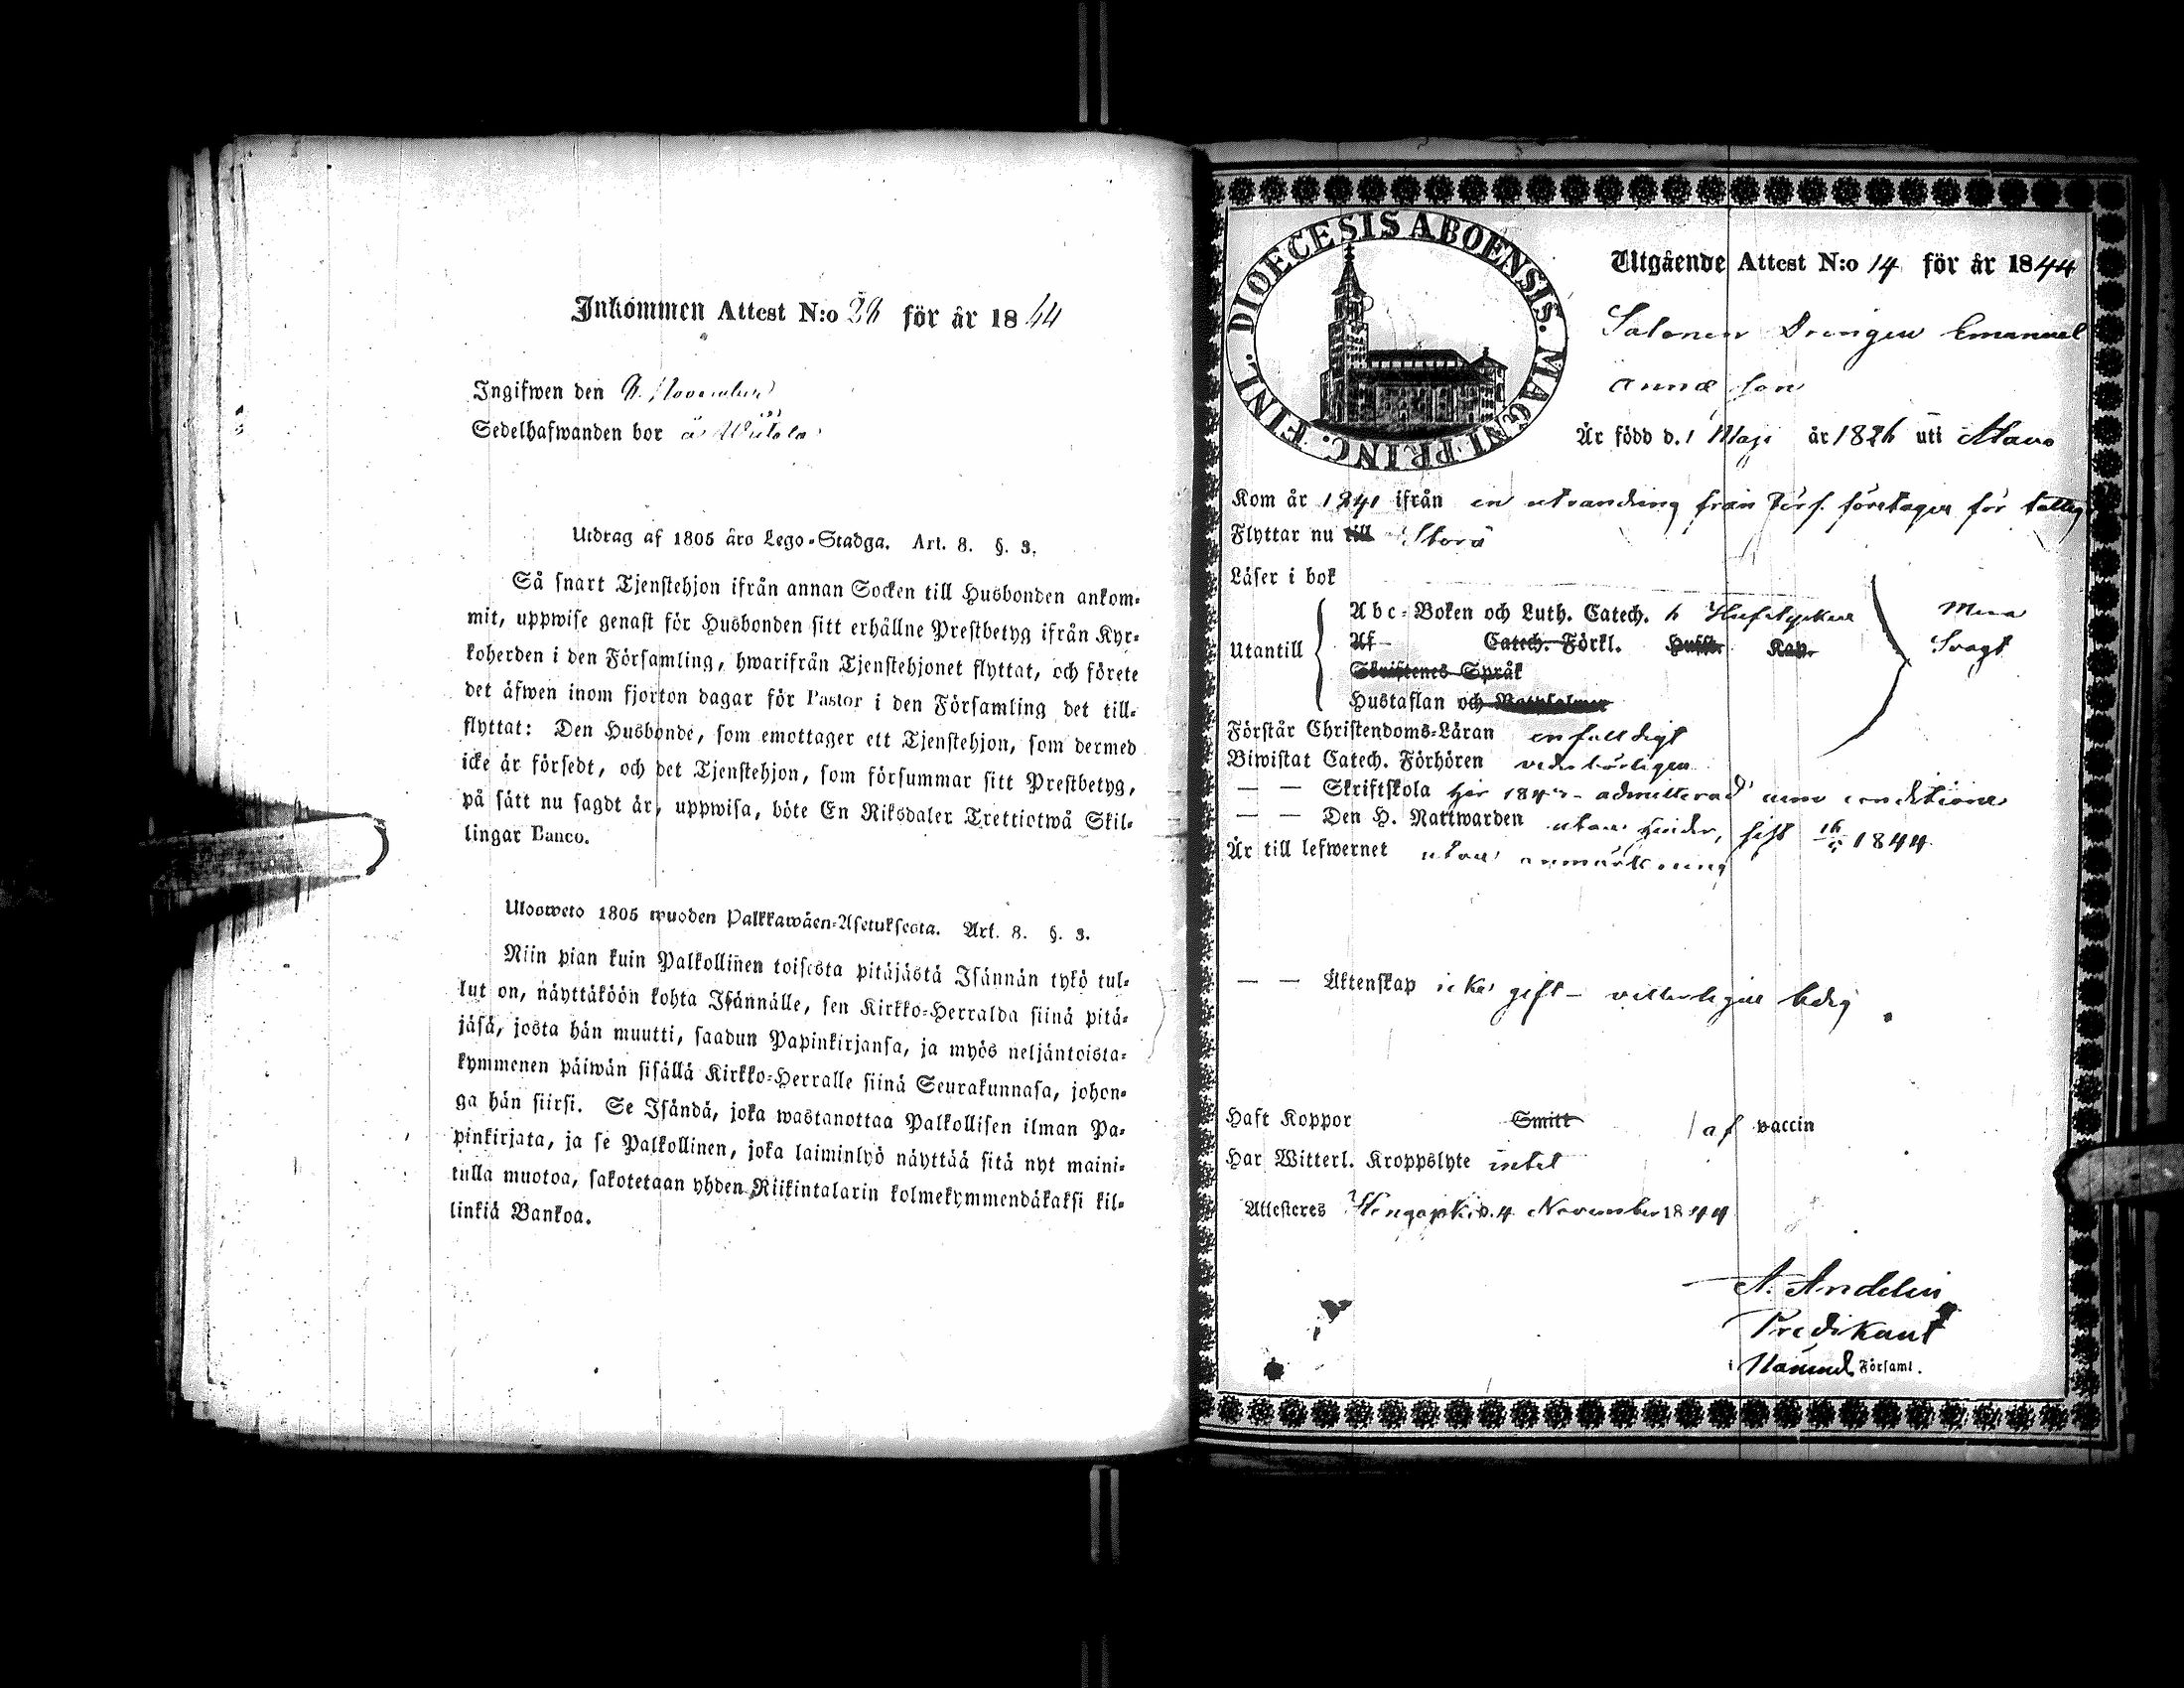 Inkommen Attest N:o för år 1844
Ingifwen den November
Sedelhafwanden bor å
Utdrag af 1805 års Lego-Stadga. Art. 8. §. 3.
Så snart Tjenstehjon ifrån annan Socken till Husbonden ankom-
mit, uppwise genast för Husbonden sitt erhållne Prestbetyg ifrån Kyr-
koherden i den Församling, hwarifrån Tjenstehjonet flyttat, och förete
det äfwen inom fjorton dagar för Pastor i den Församling det till-
flyttat: Den Husbonde, som emottager ett Tjenstehjon, som dermed
icke är försedt, och det Tjenstehjon, som försummar sitt Prestbetyg,
på sätt nu sagdt är, uppwisa, böte En Riksdaler Trettiotwå Skil-
lingar Banco.
Ulosweto 1805 wuoden Palkkawäen-Asetuksesta. Art. 8. §. 3.
Niin pian kuin Palkollinen toisesta pitäjästä Isännän tykö tul-
lut on, näyttäköön kohta Isännälle, sen Kirkko-Herralda siinä pitä-
jäsä, josta hän muutti, saadun Papinkirjansa, ja myös neljäntoista-
kymmenen päiwän sisällä Kirkko-Herralle siinä Seurakunnasa, johon-
ga hän siirsi. Se Isändä, joka wastanottaa Palkollisen ilman Pa-
pinkirjata, ja se Palkollinen, joka laiminlyö näyttää sitä nyt maini-
tulla muotoa, sakotetaan yhden Riikintalarin kolmekymmendäkaksi kil-
linkiä Bankoa.
DIOECESIS ABOENSIS. MAGNI PRINC. FINL.
Utgående Attest N:o 14 för år 1844
Drengen Emanuel
Annæ son
Är född d. 1 Maji år 1826 uti Alavo
Kom år 1841 ifrån en utvandring från förs. företagen för
Flyttar nu till Storå
Läser i bok
Utantill
Abc-Boken och Luth. Catech. Hufstycken
Af Catech. Förkl. Hufst. Kap.
Skriftenes Språk
Hustaflan och Botpsalmer
Svagt
Förstår Christendoms-Läran enfalldigt
Biwistat Catech. Förhören vederbörligen
— — Skriftskola här admitterad cum conditione
— — Den H. Nattwarden utan hinder, sist 1844
Är till lefwernet utan anmärkning
— — Äktenskap icke gift – vitterligen ledig
Haft Koppor Smitt af vaccin
Har Witterl. Kroppslyte intet
Attesteres d. 4 November 1844
A. Andelin
Predikant
i Församl.